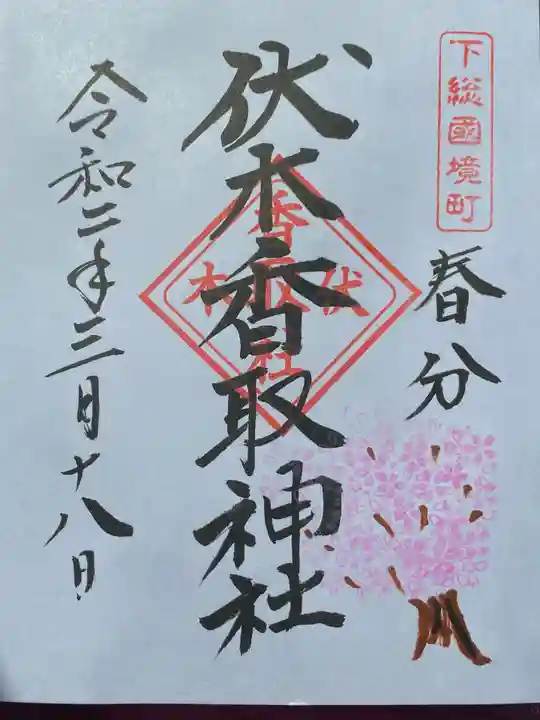 下総國境町
春分
伏木香取神社
伏木香取神社
令和二年三月十八日